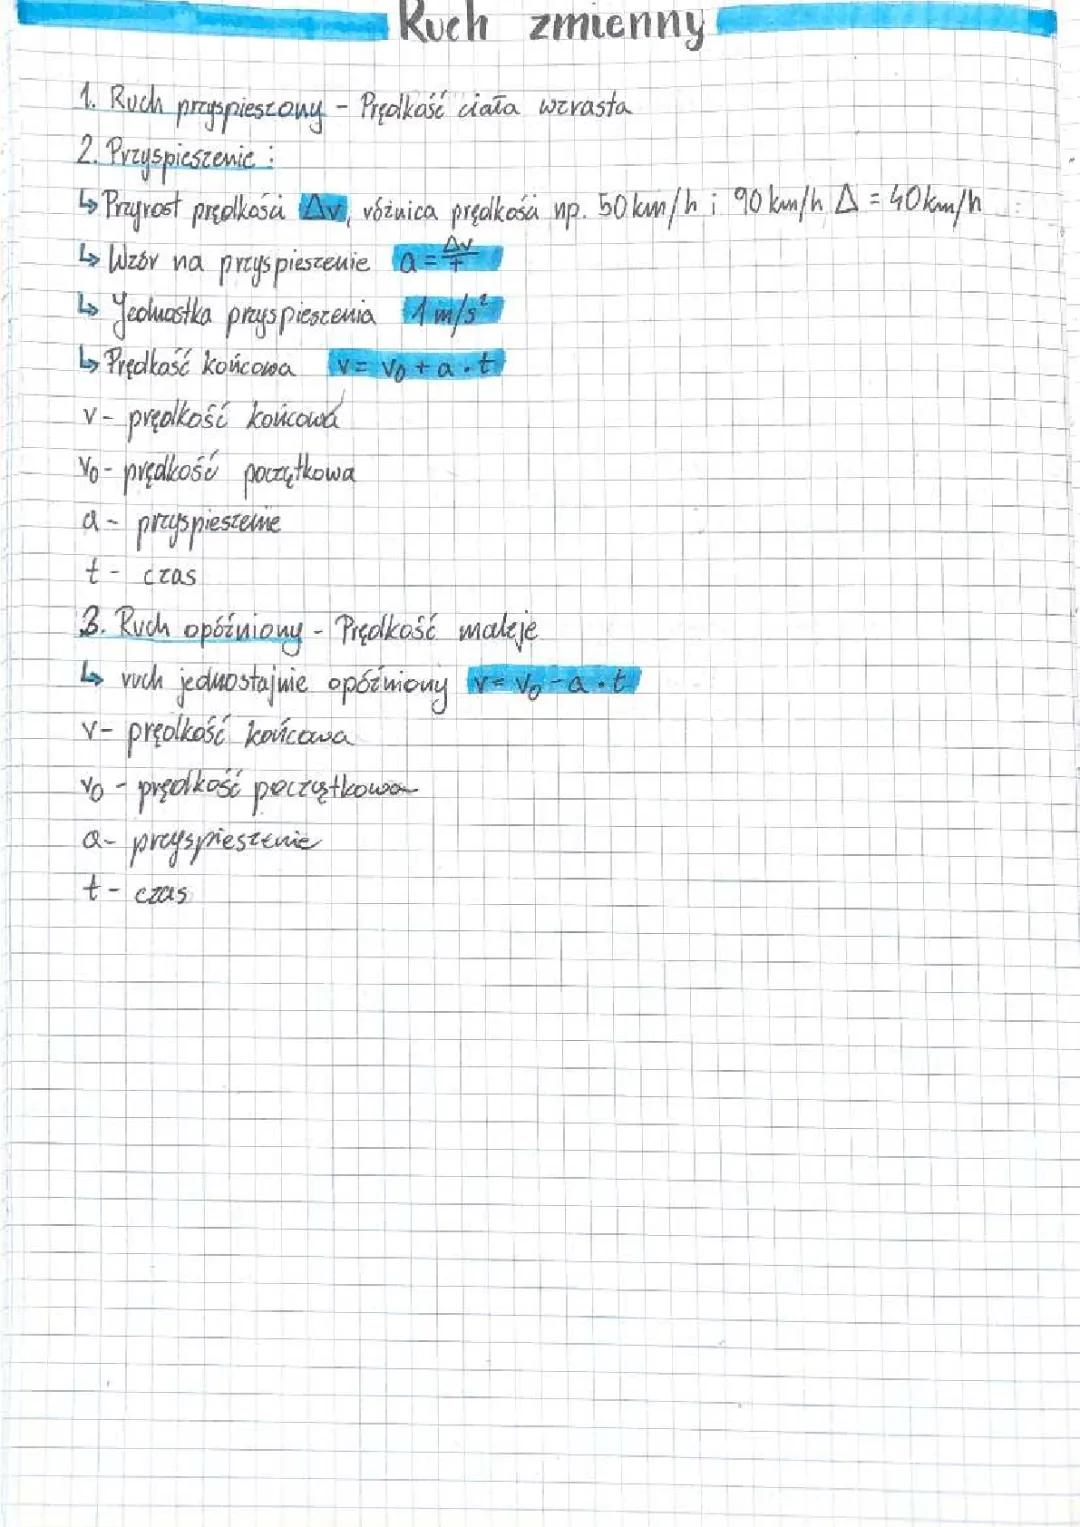 Ruch zmienny
1. Ruch przyspieszony - Prędkość ciała wzrasta
2. Przyspieszenie :
↳ Przyrost prędkości Δv, różnica prędkości np. 50 km/h i 90 km/h Δ = 40 km/h
↳ Wzór na przyspieszenie a = Δv/t
↳ Jednostka przyspieszenia 1 m/s²
↳ Prędkość końcowa v = v₀ + a · t
v - prędkość końcowa
v₀ - prędkość początkowa
a - przyspieszenie
t - czas
3. Ruch opóźniony - Prędkość maleje
↳ ruch jednostajnie opóźniony v = v₀ - a · t
v - prędkość końcowa
v₀ - prędkość początkowa
a - przyspieszenie
t - czas